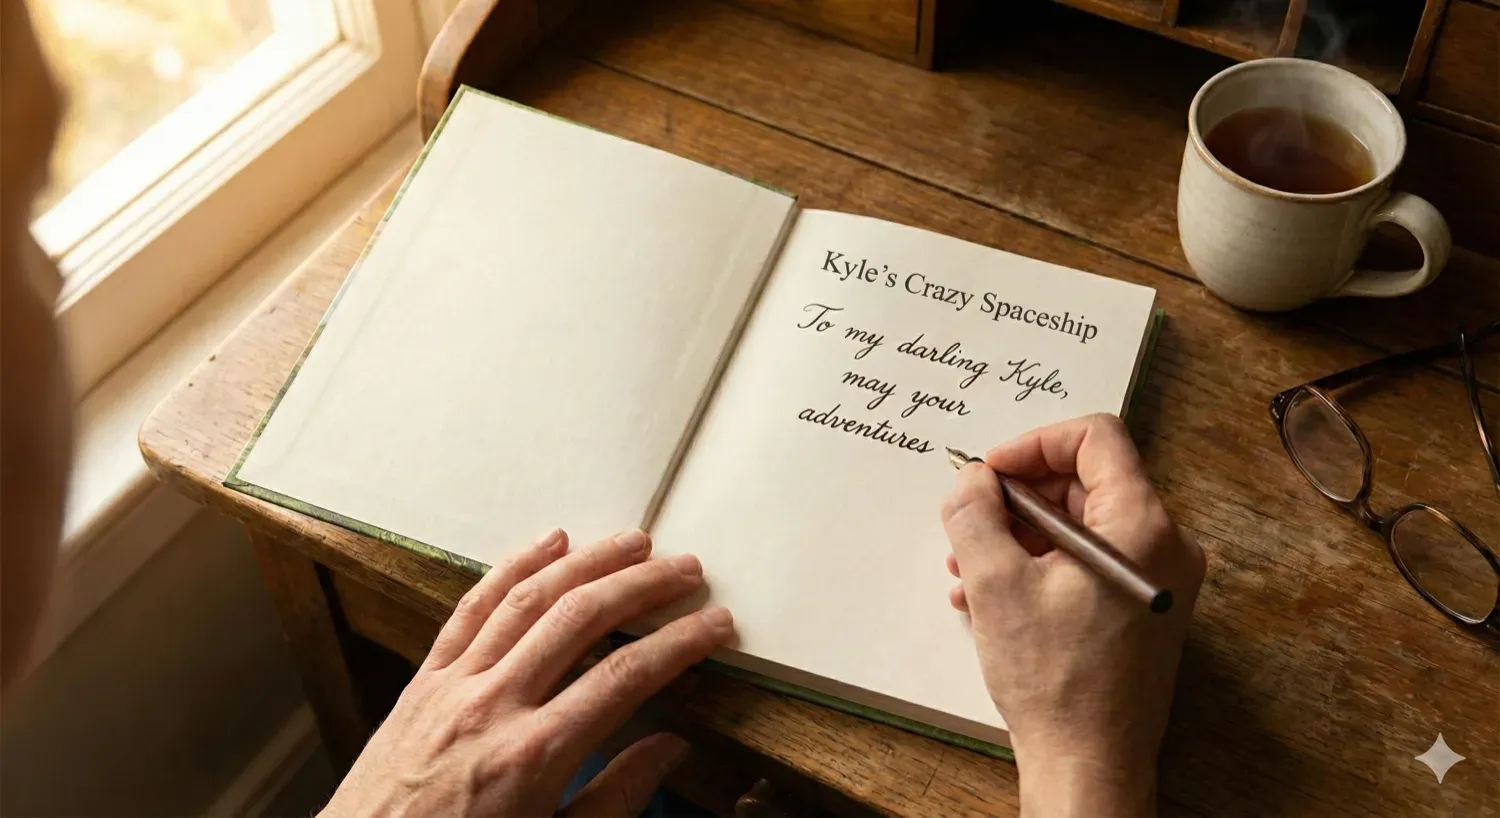 Kyle’s Crazy Spaceship
To my darling Kyle,
may your
adventures